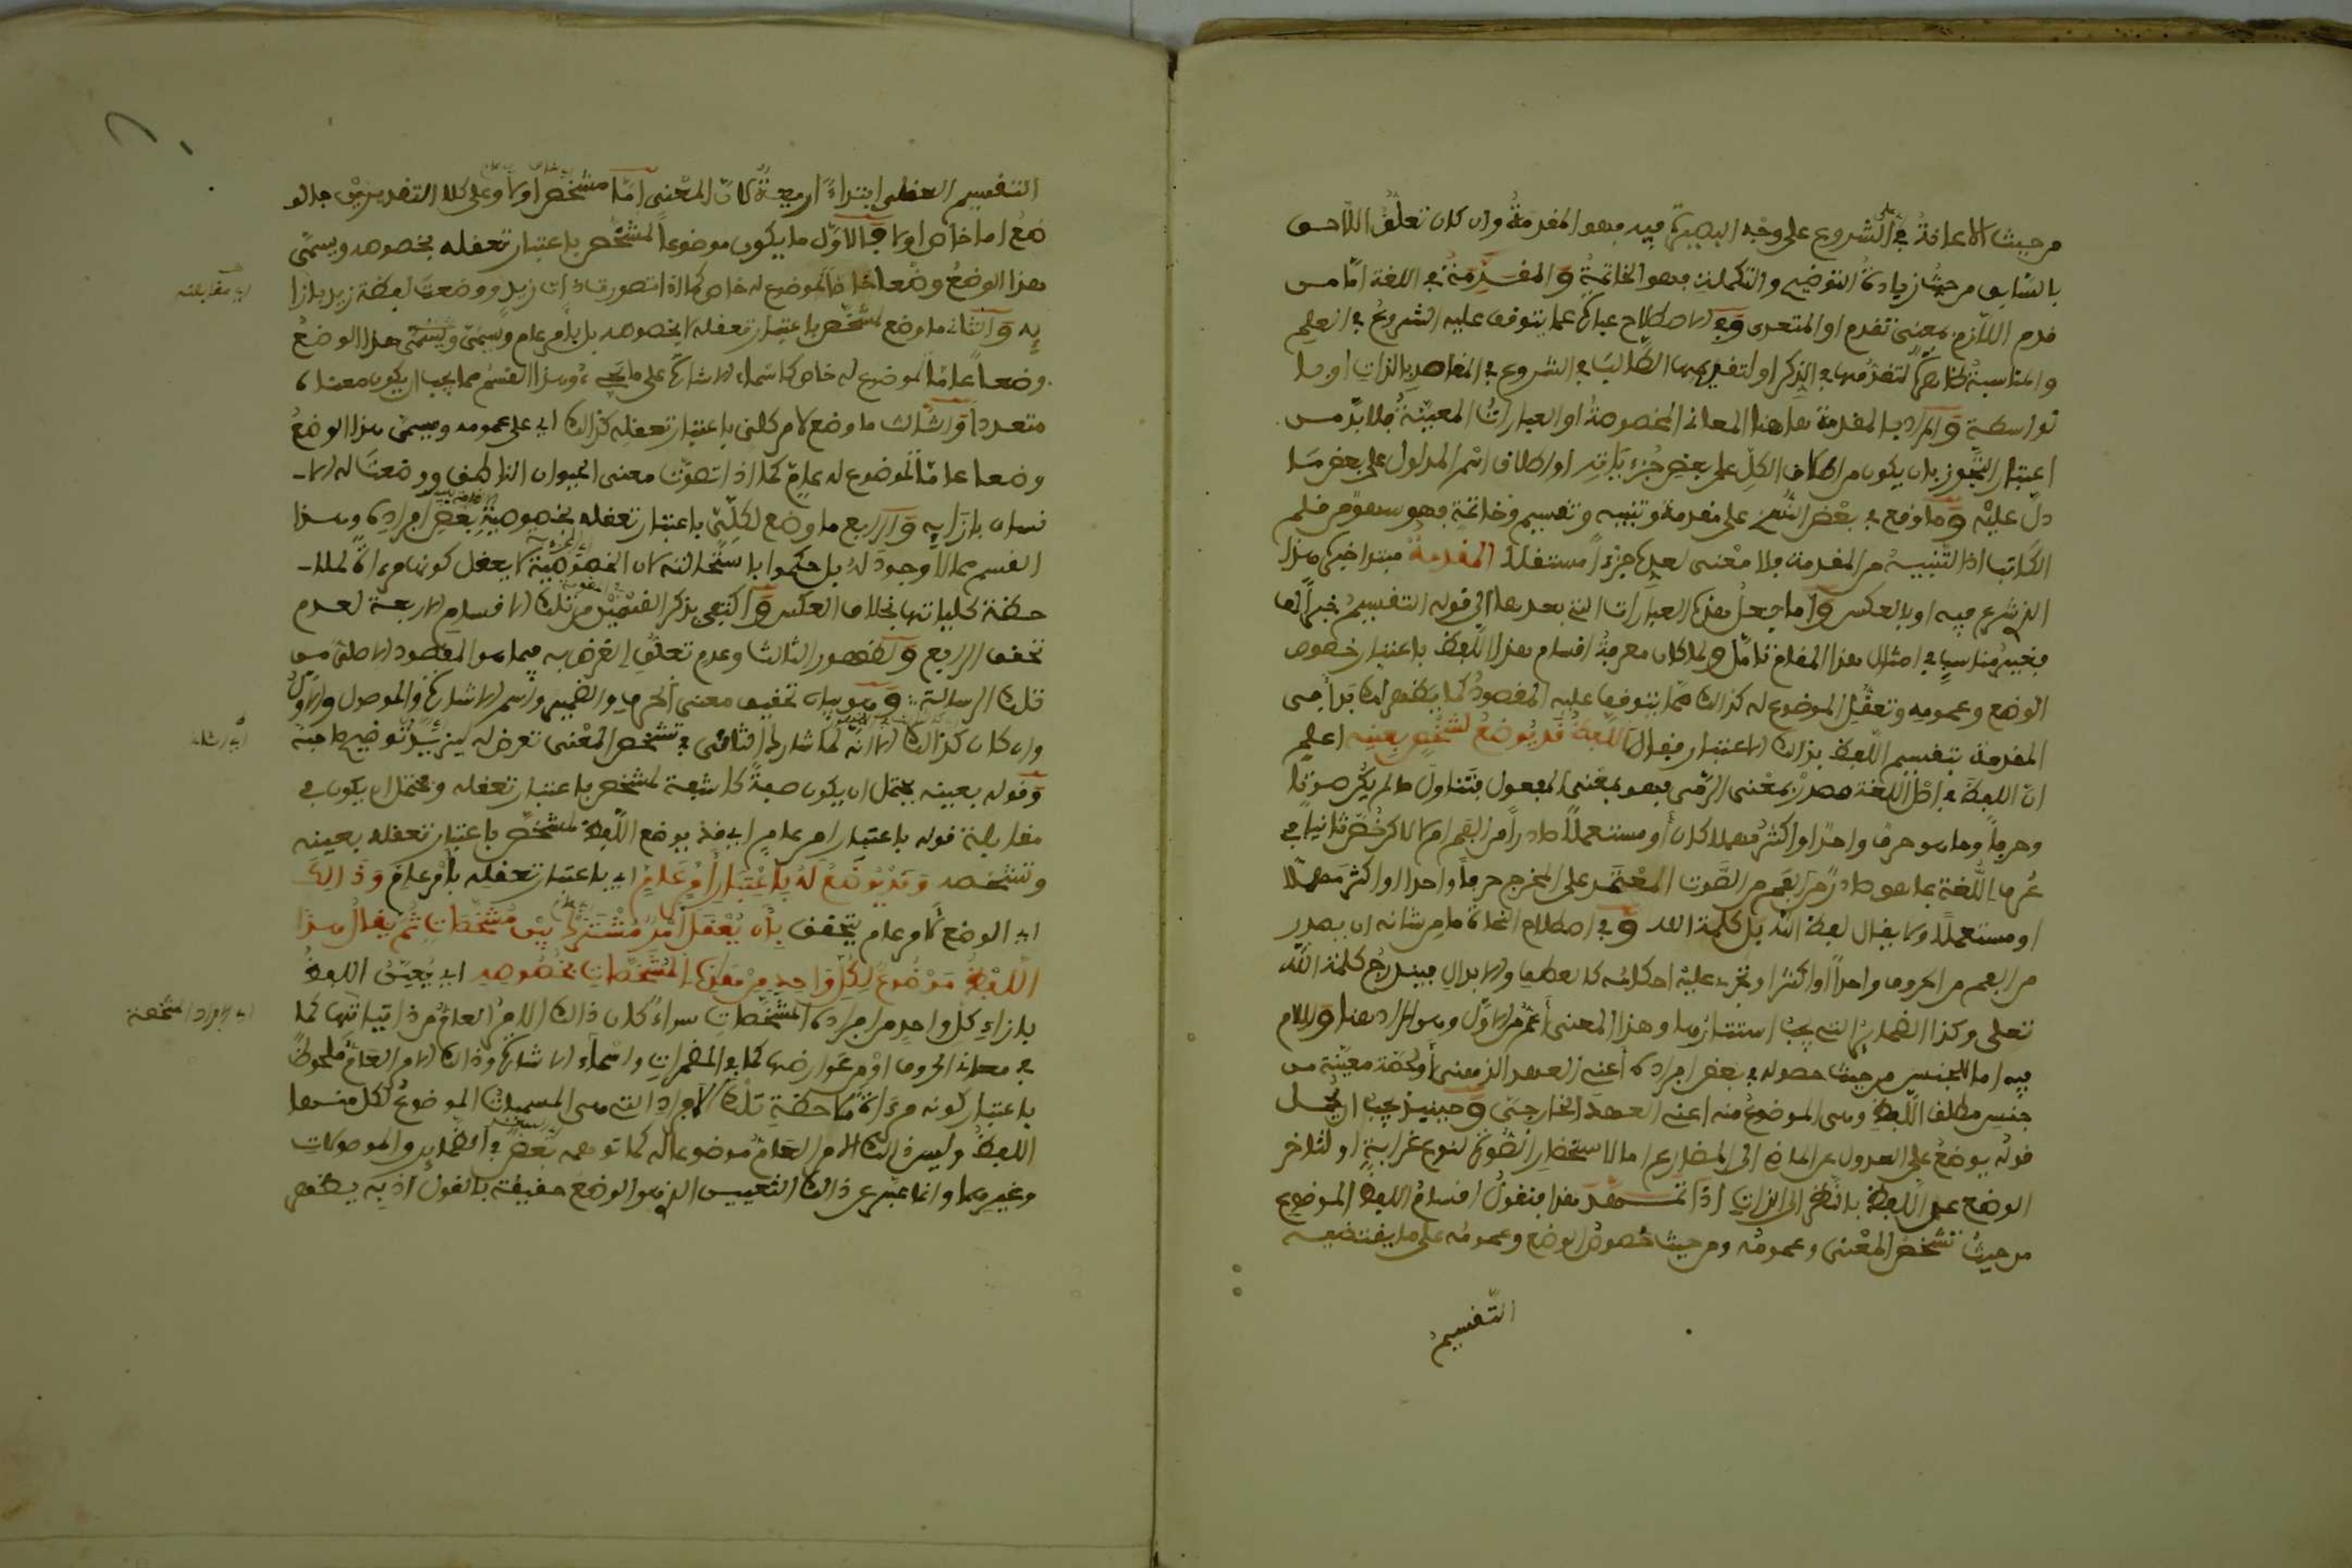 من حيث الاعانة في الشروع على وجه البصيرة فيه فهو المقدمة وان كان تعلق اللاحق
بالسابق من حيث زيادة التوضيح والتكميل فهو الخاتمة والمقدمة في اللغة اما من
قدم اللازم بمعنى تقدم او المتعدى وفي الاصطلاح عبارة عما يتوقف عليه الشروع في العلم
والمناسبة ظاهرة لتقدمها في الذكر او لتقديمها الطالب في الشروع في المقاصد بالذات او بلا
تواسطية والمراد بالمقدمة هاهنا المعاني المخصوصة او العبارات المعينة فلا بد من
اعتبار التجوز بان يكون من اطلاق الكل على بعض جزءياته او اطلاق اسم المدلول على بعض ما
دل عليه وما وقع في بعض النسخ على مقدمة وتنبيه وتقسيم وخاتمة فهو سهو من قلم
الكاتب اذ التنبيه من المقدمة فلا معنى لعده جزءا مستقلا المقدمة مبتدا خبره هذا
الذي شرع فيه او بالعكس واما جعل هذه العبارات التي بعدها الى قوله التقسيم خبرا لها
فغير مناسب في امثال هذا المقام تامل ولما كان معرفة اقسام هذا اللفظ باعتبار خصوص
الوضع وعمومه وتعقل الموضوع له كذالك مما يتوقف عليه المقصود كما يظهر لك بدا في
المقدمة بتقسيم اللفظ بذالك الاعتبار فقال اللفظ قد يوضع لشخص بعينه اعلم
ان اللفظ في اصل اللغة مصدر بمعنى الرمي فهو بمعنى المفعول فتناول ما لم يكن صوتا
وحرفا وما هو حرف واحد او اكثر مهملا كان او مستعملا صادرا من الفم ام لا لكن خص ثانيا في
عرف اللغة بما هو صادر من الفم من الصوت المعتمد على المخرج حرفا واحدا او اكثر مهملا
او مستعملا ولا يقال لفظ الله بل كلمة الله وفي اصطلاح النحاة ما من شانه ان يصدر
من الفم من الحروف واحدا او اكثر او تجرى عليه احكامه كالعطف والابدال فيندرج كلمة الله
تعلى وكذا الضماير التي يجب استتارها وهذا المعنى اعم من الاول وهو المراد هنا واللام
فيه اما للجنس من حيث حصوله في بعض افراده اعني العهد الذهني او لحصة معينة من
جنس مطلف اللفظ وهى الموضوع منه اعني العهد الخارجي وحينئذ يجب ان يحمل
قوله يوضع على العدول عن الماضي الى المضارع اما لاستحضار الصورة لنوع غرابة او لتاخر
الوضع عن اللفظ بالنظر الى الذات اذا تمهد هذا فنقول اقسام اللفظ الموضوع
من حيث تشخص المعنى وعمومه ومن حيث خصوص الوضع وعمومه على ما يقتضيه
التقسيم
التقسيم العقلي ابتداء اربعة لان المعنى اما مشخص او لا وعلى كلا التقديرين فالو
ضع اما خاص او لا فالاول ما يكون موضوعا لمشخص باعتبار تعقله بخصوصه ويسمى
هذا الوضع وضعا خاصا لموضوع له خاص كما اذا تصورت ذات زيد ووضعت لفظة زيد بازا
يه والثاني ما وضع لمشخص باعتبار تعقله لا بخصوصه بل بامر عام ويسمى هذا الوضع
وضعا عاما لموضوع له خاص كاسماء الاشارة على ما يجيء وهذا القسم مما يجب ان يكون معناه
متعددا والثالث ما وضع لامر كلى باعتبار تعقله كذالك اي على عمومه ويسمى هذا الوضع
وضعا عاما لموضوع له عام كما اذا تصورت معنى الحيوان الناطق ووضعت له الا
نسان بازايه والرابع ما وضع لكلي باعتبار تعقله بخصوصية بعض افراده وهذا
القسم مما لا وجود له بل حكموا باستحالته لان الخصوصية لا يعقل كونها مرءاة لملا
حظة كلياتها بخلاف العكس واكتفى بذكر القسمين من تلك الاقسام الاربعة لعدم
تحقق الرابع وظهور الثالث وعدم تعلق الغرض به فيما هو المقصود الاصلى من
تلك الرسالة وهو بيان تحقيق معنى الحرف والضمير واسم الاشارة والموصول والاول
وان كان كذالك الا انه لما شارك الثاني في تشخص المعنى تعرض له ليزيد توضيح صاحبه
وقوله بعينه يحتمل ان يكون صفة كاشفة لمشخص باعتبار تعقله ويحتمل ان يكون في
مقابلة قوله باعتبار امر عام اي قد يوضع اللفظ لمشخص باعتبار تعقله بعينه
وتشخصه وقد يوضع له باعتبار امر عام اي باعتبار تعقله بامر عام وذالك
اي الوضع لامر عام يتحقق بان يعقل امر مشترك بين مشخصات ثم يقال هذا
اللفظ موضوع لكل واحد من هذه المشخصات بخصوصه اي يعين اللفظ
بازاء كل واحد من افراده المشخصات سواء كان ذالك الامر العام من ذاتياتها كما
في معاني الحروف او من عوارضها كما في المضمرات واسماء الاشارة وذالك الامر العام ملحوظ
باعتبار كونه مرءاة ملاحظة تلك الافراد التي هى المسميات الموضوع لكل منها
اللفظ وليس ذالك الامر العام موضوعا له كما توهمه بعض في الضماير والموصولات
وغيرهما وانما عبر عن ذالك التعيين الذي هو الوضع حقيقة بالقول اذ به يظهر
اي مقابلته
اي الافراد المشخصة